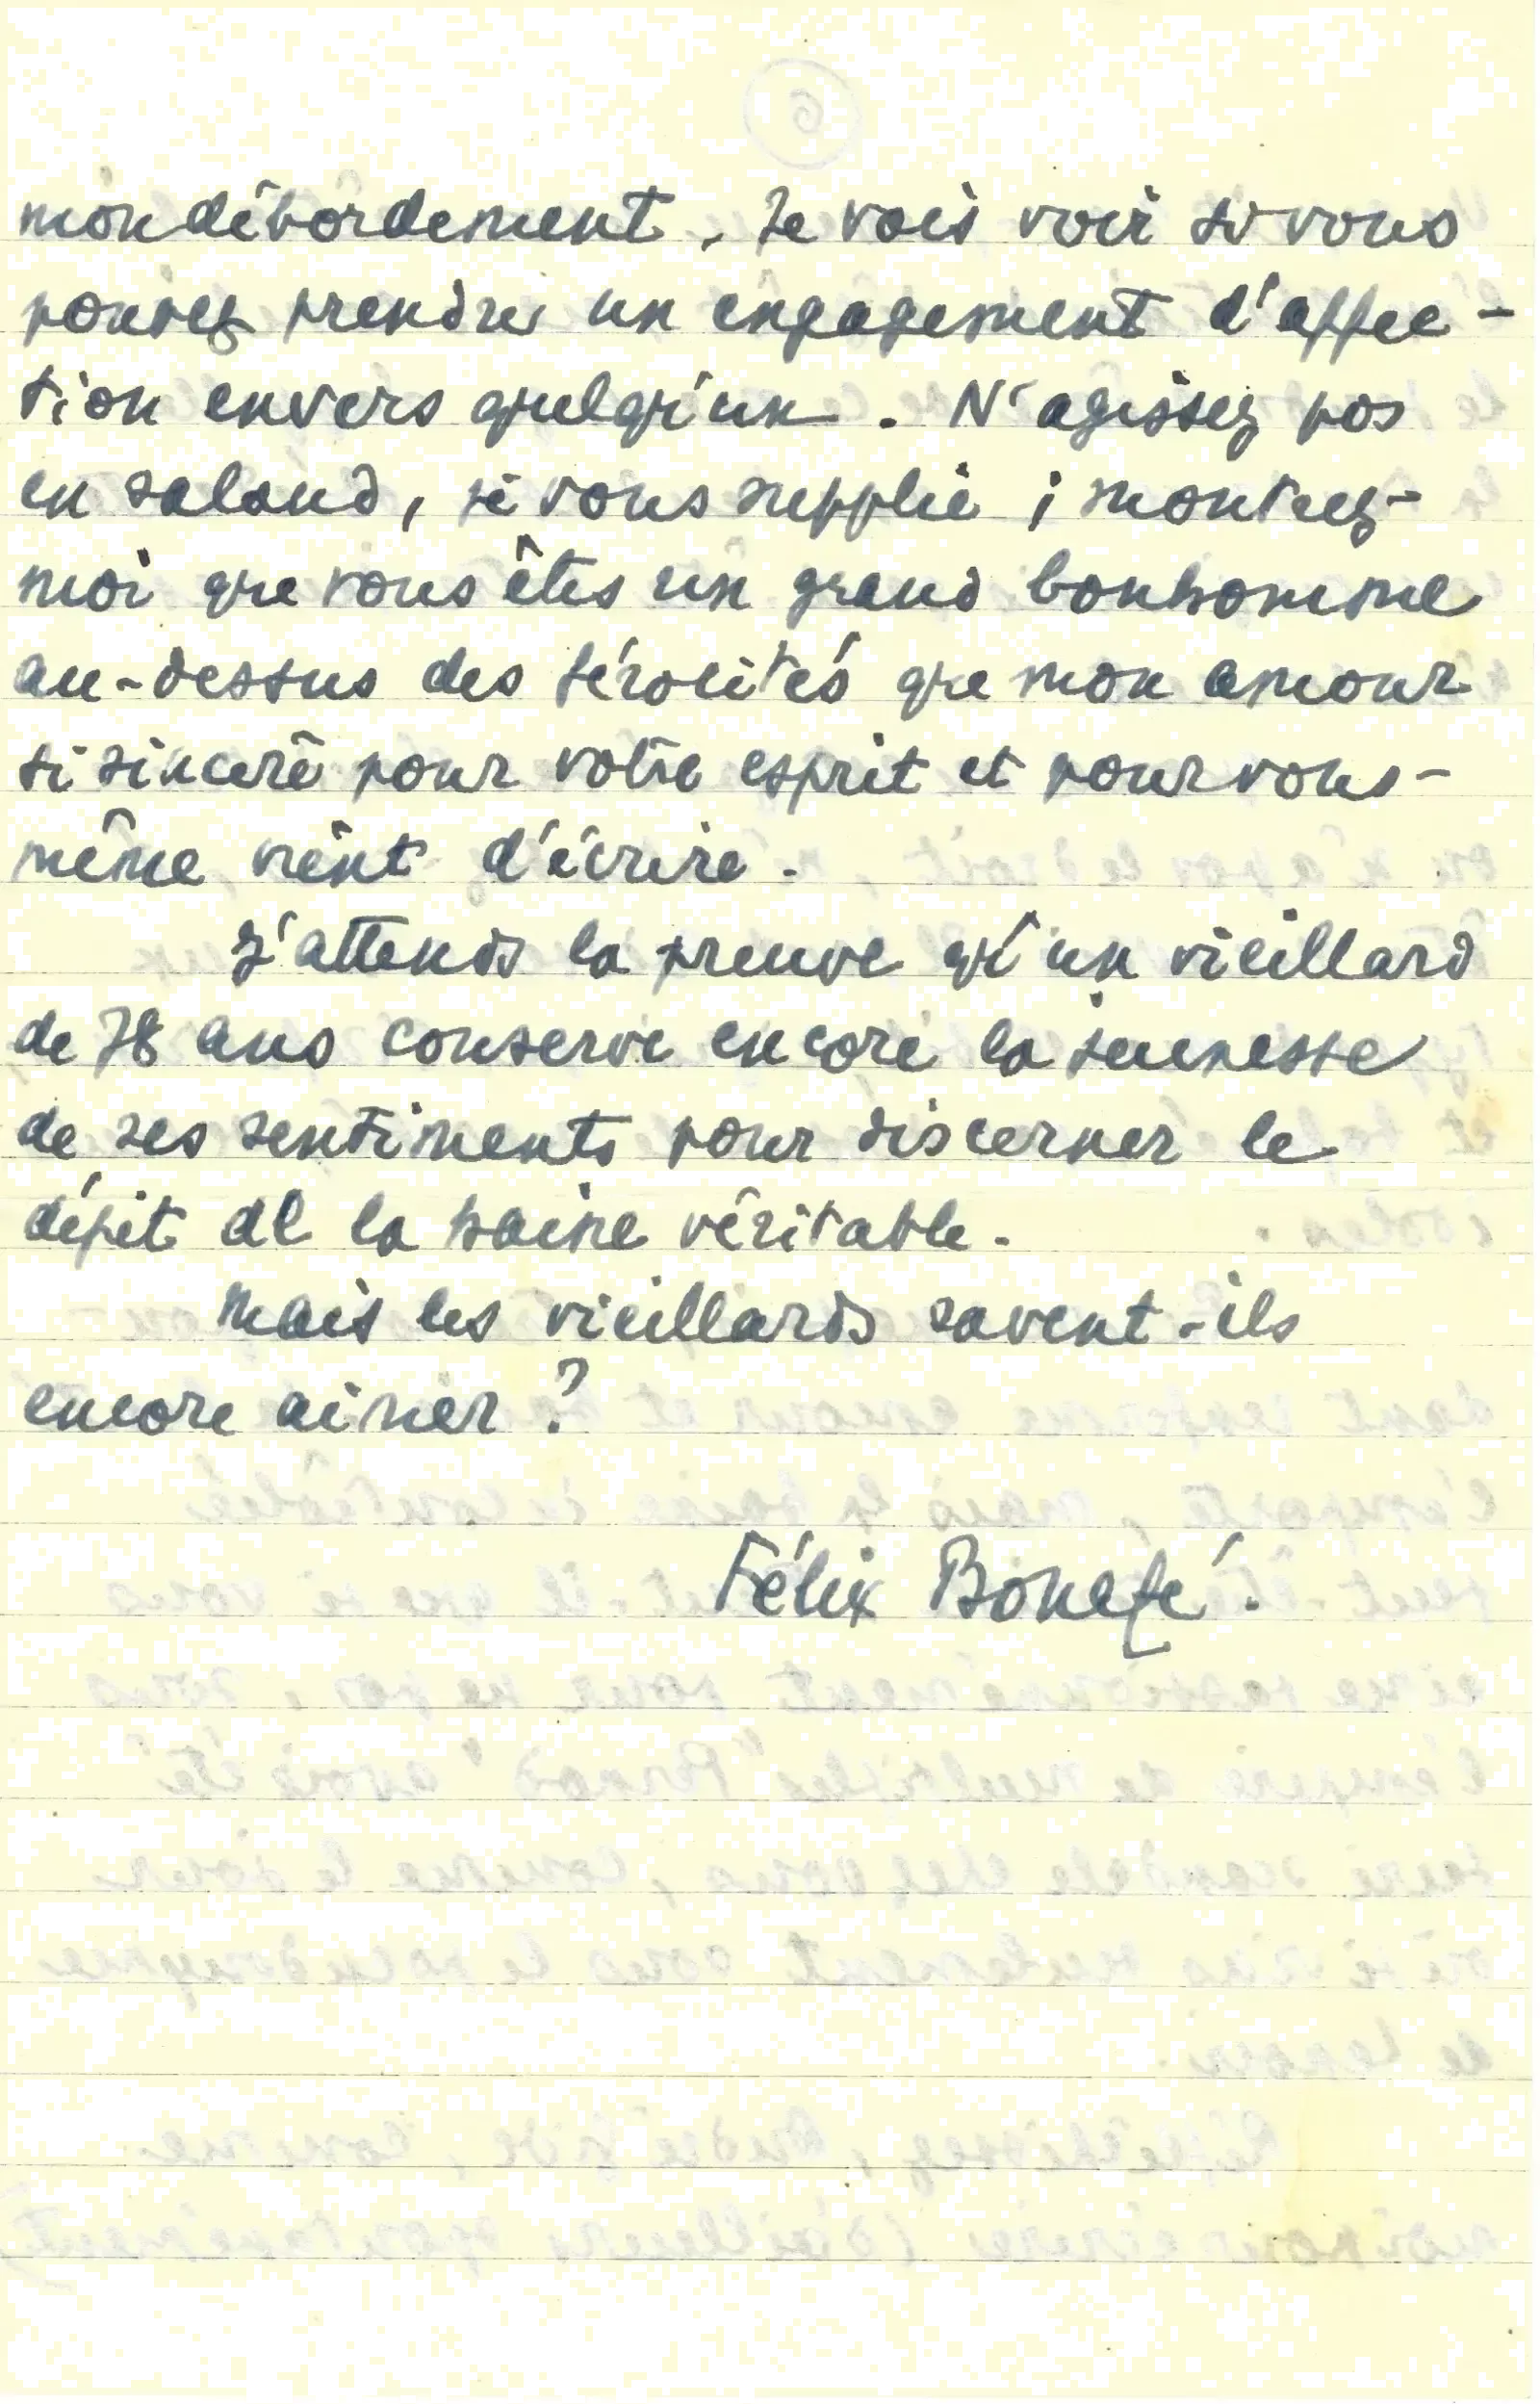 mon débordement. Je vais voir si vous
pouvez prendre un engagement d'affec-
tion envers quelqu'un. N'agissez pas
en salaud, je vous supplie ; montrez-
moi que vous êtes un grand bonhomme
au-dessus des férocités que mon amour
si sincère pour votre esprit et pour vous-
même vient d'écrire.
J'attends la preuve qu'un vieillard
de 78 ans conserve encore la jeunesse
de ses sentiments pour discerner le
dépit de la haine véritable.
Mais les vieillards savent-ils
encore aimer ?
Félix Bonafé.